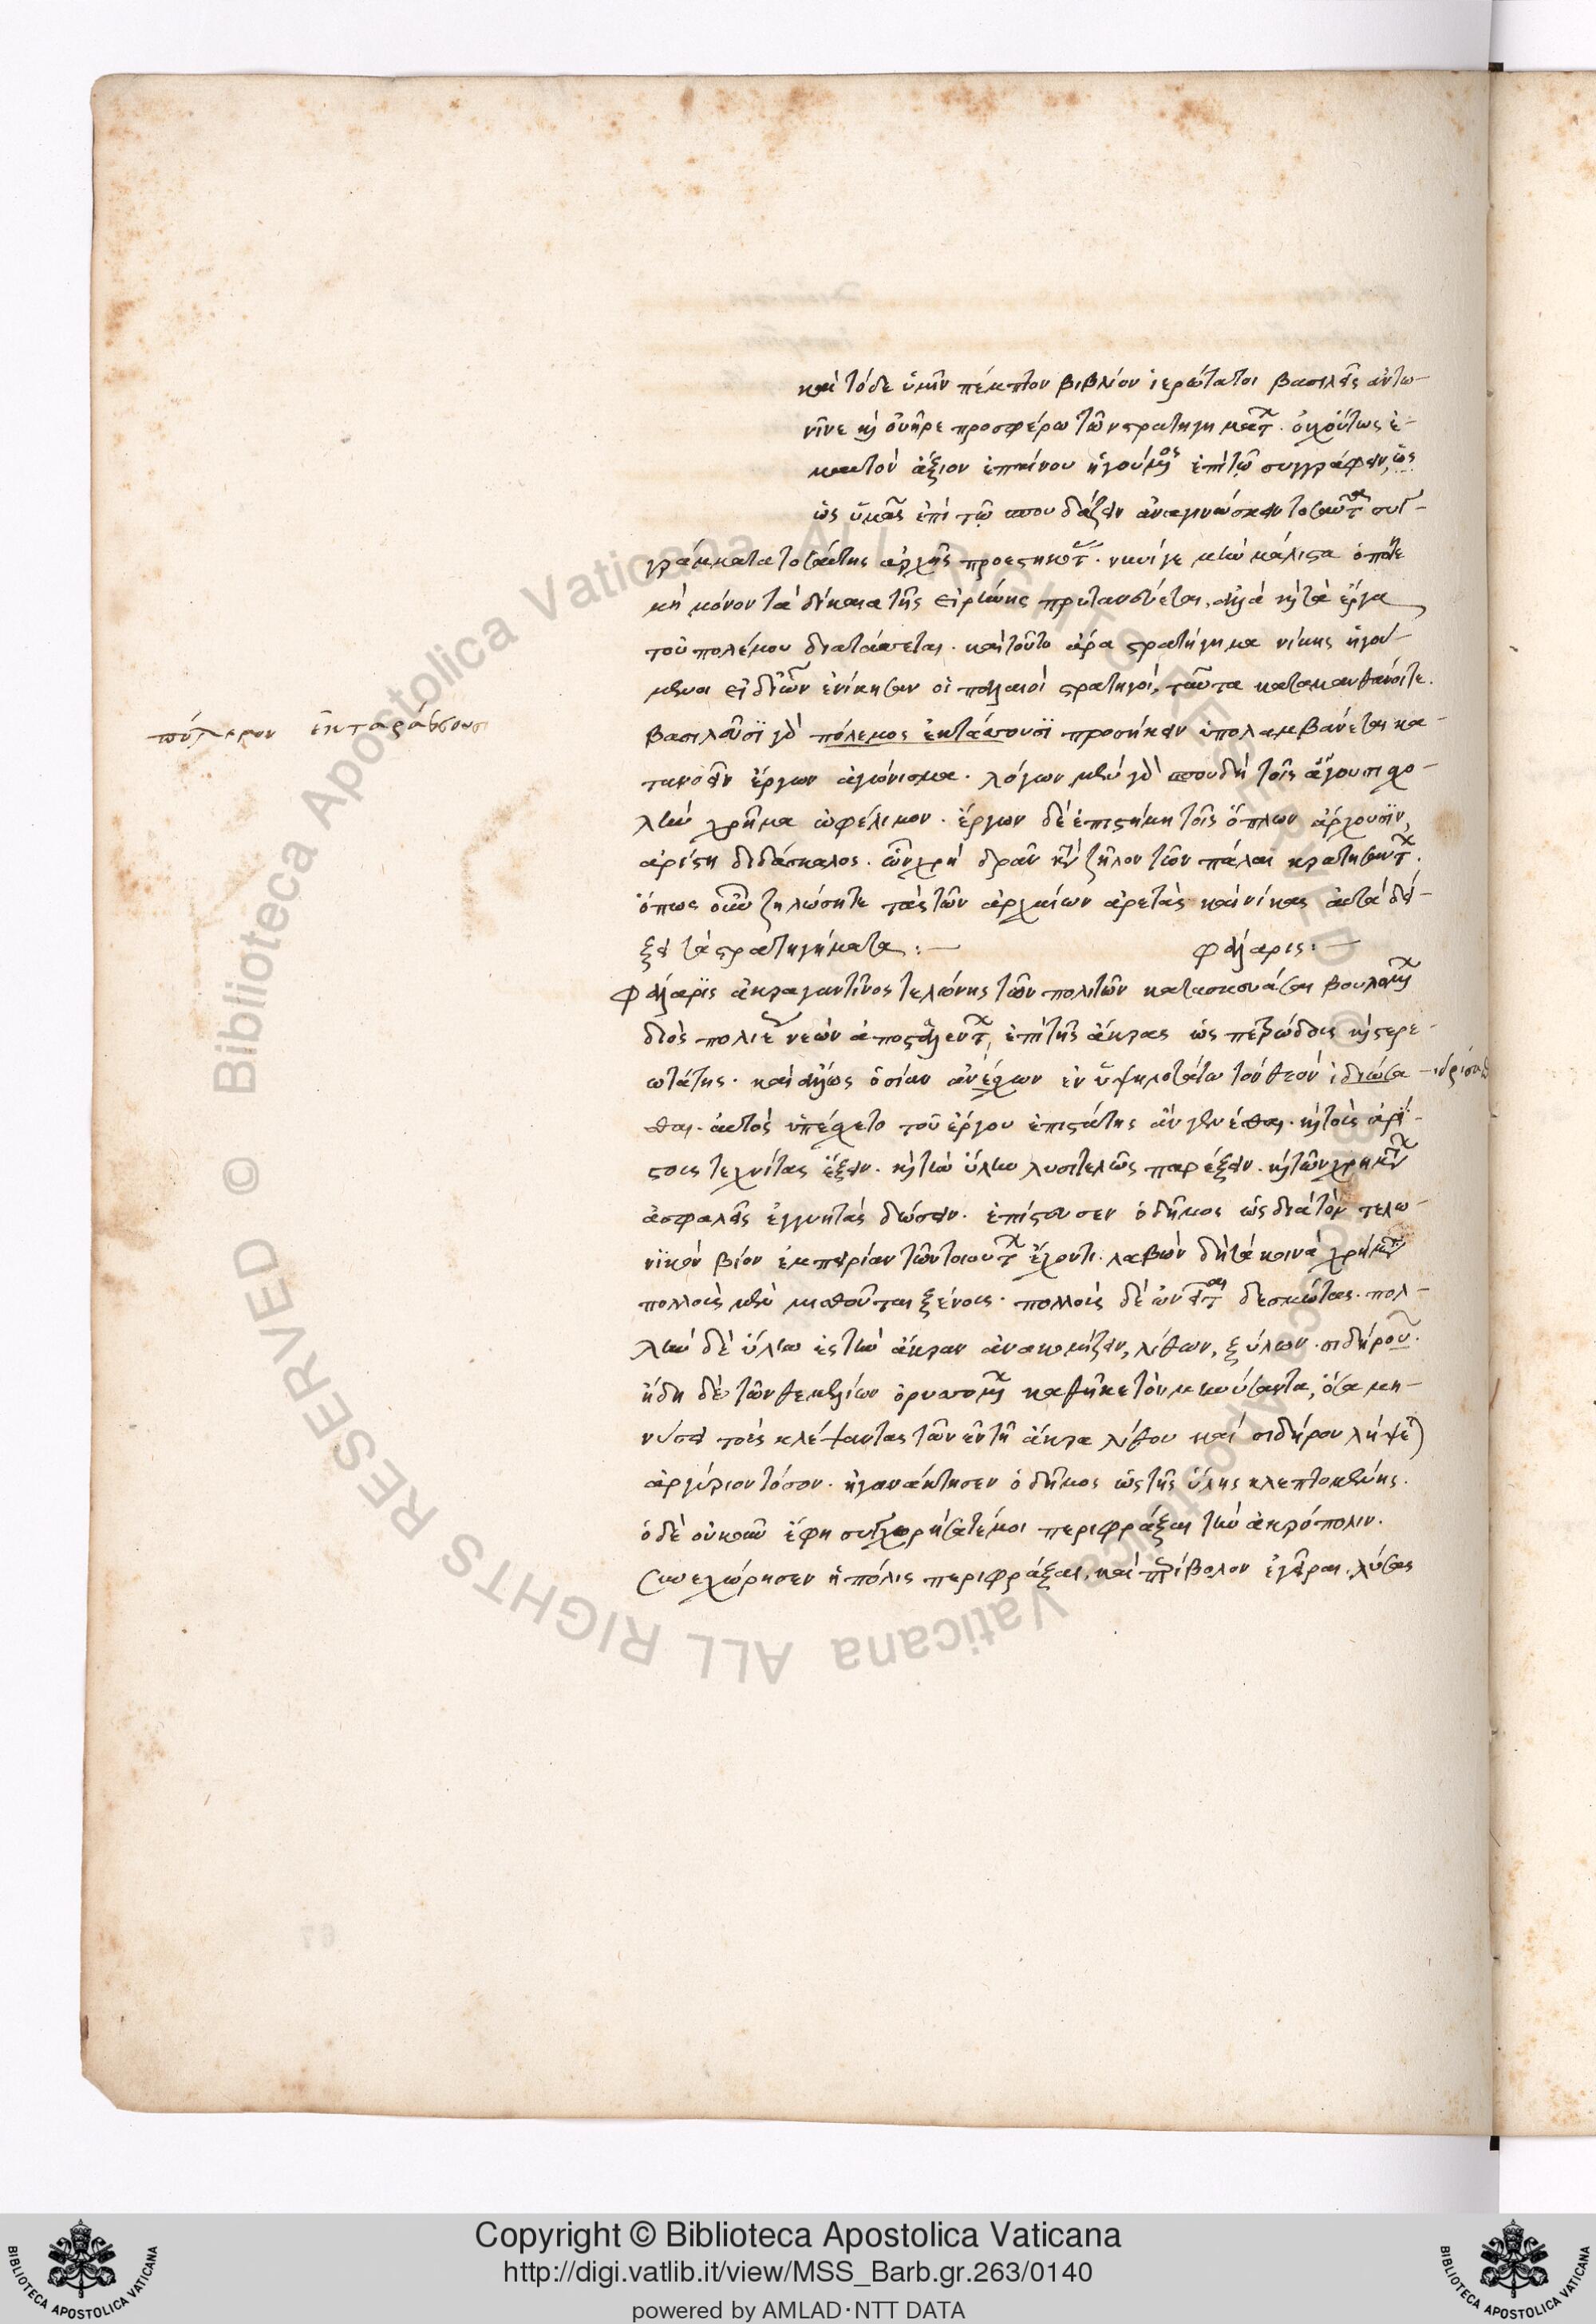 καὶ τόδε ὑμῖν πέμπτον βιβλίον ἱερώτατοι βασιλεῖς ἀντω-
νῖνε καὶ οὐῆρε προσφέρω τῶν στρατηγημάτων. οὐχ οὕτως ἐ-
μαυτὸν ἄξιον ἐπαίνου ἡγούμενος ἐπὶ τῷ συγγράφειν, ὡς
ὡς ὑμᾶς ἐπὶ τῷ σπουδάζειν ἀναγινώσκειν τοσαῦτα συγ-
γράμματα τοσαύτης ἀρχῆς προεστηκότας. νικᾷ γε μὴν μάλιστα ὁπότε
μὴ μόνον τὰ δίκαια τῆς εἰρήνης πρυτανεύεται, ἀλλὰ καὶ τὰ ἔργα
τοῦ πολέμου διατάττεται. καὶ τοῦτο ἄρα στρατήγημα νίκης ἡγού-
μενοι εἰ δι' ὧν ἐνίκησαν οἱ παλαιοὶ στρατηγοὶ, ταῦτα καταμανθάνοιτε.
βασιλεῦσϊ γὰρ πόλεμος ἐκτάττουσϊ προσήκειν ὑπολαμβάνεται κα-
τανοεῖν ἔργων ἀγώνισμα. λόγων μὲν γὰρ σπουδὴ τοῖς ἄγουσι σχο-
λὴν χρῆμα ὠφέλιμον. ἔργων δὲ ἐπιστήμη τοῖς ὅπλων ἄρχουσϊν,
ἀρίστη διδάσκαλος. ὧν χρὴ δρᾶν κατὰ ζῆλον τῶν πάλαι κρατησάντων.
ὅπως οὖν ζηλώσητε τὰς τῶν ἀρχαίων ἀρετὰς καὶ νίκας αὐτὰ δεί-
ξει τὰ στρατηγήματα :—
φάλαρις :—
Φάλαρϊς ἀκραγαντῖνος τελώνης τῶν πολιτῶν κατασκευάσαι βουλομένων
διὸς πολιέως νεὼν ἀπὸ ταλάντων, ἐπὶ τῆς ἄκρας ὡς πετρώδους καὶ στερε-
ωτάτης. καὶ ἄλλως ὁσίαν ἀνέχων ἐν ὑψηλοτάτῳ τὸν θεὸν ἱδρύσα-
ἱδρύσασ
σθαι. αὐτὸς ὑπέσχετο τοῦ ἔργου ἐπιστάτης ἂν γενέσθαι. καὶ τοὺς ἀρί-
στους τεχνίτας ἕξειν. καὶ τὴν ὕλην λυσιτελῶς παρέξειν. καὶ τῶν χρημάτων
ἀσφαλεῖς ἐγγυητὰς δώσειν. ἐπίστευσεν ὁ δῆμος ὡς διὰ τὸν τελω-
νϊκὸν βίον ἐμπειρίαν τῶν τοιούτων ἔχοντι. λαβὼν δὴ τὰ κοινὰ χρήματα
πολλοὺς μὲν μισθοῦται ξένους. πολλοὺς δὲ ὠνεῖται δεσμώτας. πολ-
λὴν δὲ ὕλην ἐς τὴν ἄκραν ἀνακομίζειν, λίθων, ξύλων. σιδήρου.
ἤδη δὲ τῶν θεμελίων ὀρυττομένων καθῆκε τὸν κηρύξαντα, ὅσα μη-
νύσει τοὺς κλέψαντας τῶν ἐν τῇ ἄκρα λίθου καὶ σιδήρου λήψεται
ἀργύριον τόσον. ἠγανάκτησεν ὁ δῆμος ὡς τῆς ὕλης κλεπτομένης.
ὁ δὲ οὐκοῦν ἔφη συγχωρήσατέ μοι περιφράξαι τὴν ἀκρόπολιν.
συνεχώρησεν ἡ πόλις περιφράξαι, καὶ περίβολον ἐγεῖραι. λύσας
πόλεμον ἐκταράσσουσι
Copyright © Biblioteca Apostolica Vaticana
http://digi.vatlib.it/view/MSS_Barb.gr.263/0140
powered by AMLAD·NTT DATA
BIBLIOTECA APOSTOLICA VATICANA
BIBLIOTECA APOSTOLICA VATICANA
© Biblioteca Apostolica Vaticana ALL RIGHTS RESERVED